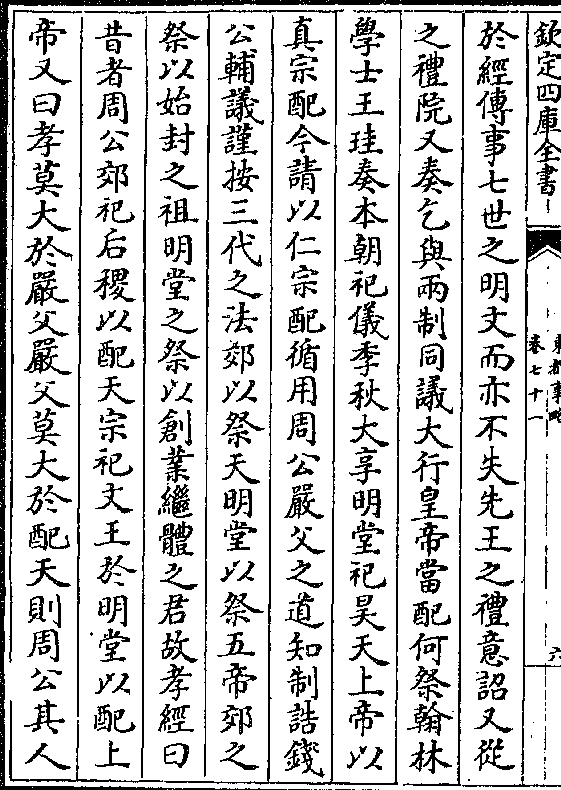 欽定四庫全書
東都事略
卷七十一
六
於經傳事七世之明文而亦不失先王之禮意詔又從
之禮院又奏乞與兩制同議大行皇帝當配何祭翰林
學士王珪奏本朝祀儀季秋大享明堂祀昊天上帝以
真宗配今請以仁宗配循用周公嚴父之道知制誥錢
公輔議謹按三代之法郊以祭天明堂以祭五帝郊之
祭以始封之祖明堂之祭以創業繼體之君故孝經曰
昔者周公郊祀后稷以配天宗祀文王於明堂以配上
帝又曰孝莫大於嚴父嚴父莫大於配天則周公其人